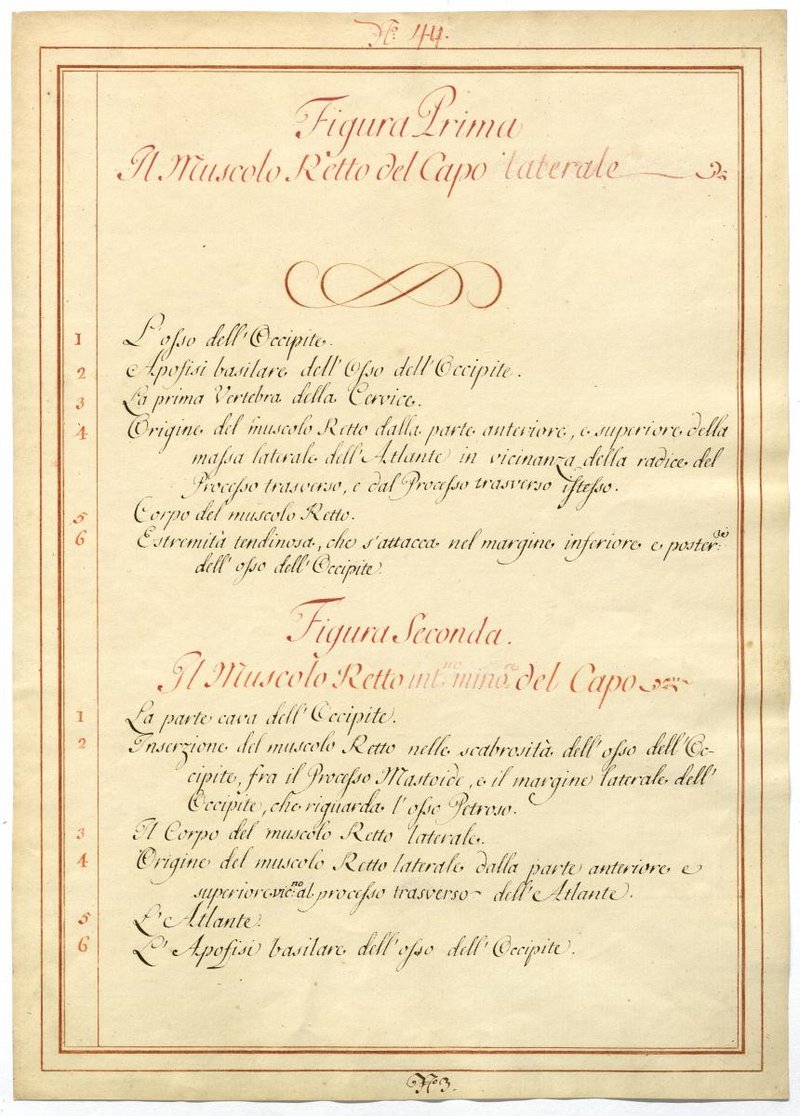 N.º 44.
Figura Prima
Il Muscolo Retto del Capo laterale
1 L'osso dell'Occipite.
2 Apofisi basilare dell'Osso dell'Occipite.
3 La prima Vertebra della Cervice.
4 Origine del muscolo Retto dalla parte anteriore, e superiore della
massa laterale dell'Atlante in vicinanza della radice del
Processo trasverso, e dal Processo trasverso istesso.
5 Corpo del muscolo Retto.
6 Estremità tendinosa, che s'attacca nel margine inferiore e poster:re
dell'osso dell'Occipite.
Figura Seconda.
Il Muscolo Retto int:no mino:re del Capo
1 La parte cava dell'Occipite.
2 Inserzione del muscolo Retto nelle scabrosità dell'osso dell'Oc-
cipite, fra il Processo Mastoide, e il margine laterale dell'
Occipite, che riguarda l'osso Petroso.
3 Il Corpo del muscolo Retto laterale.
4 Origine del muscolo Retto laterale dalla parte anteriore e
superiore vic:no al processo trasverso dell'Atlante.
5 L'Atlante.
6 L'Apofisi basilare dell'osso dell'Occipite.
Nº 3.